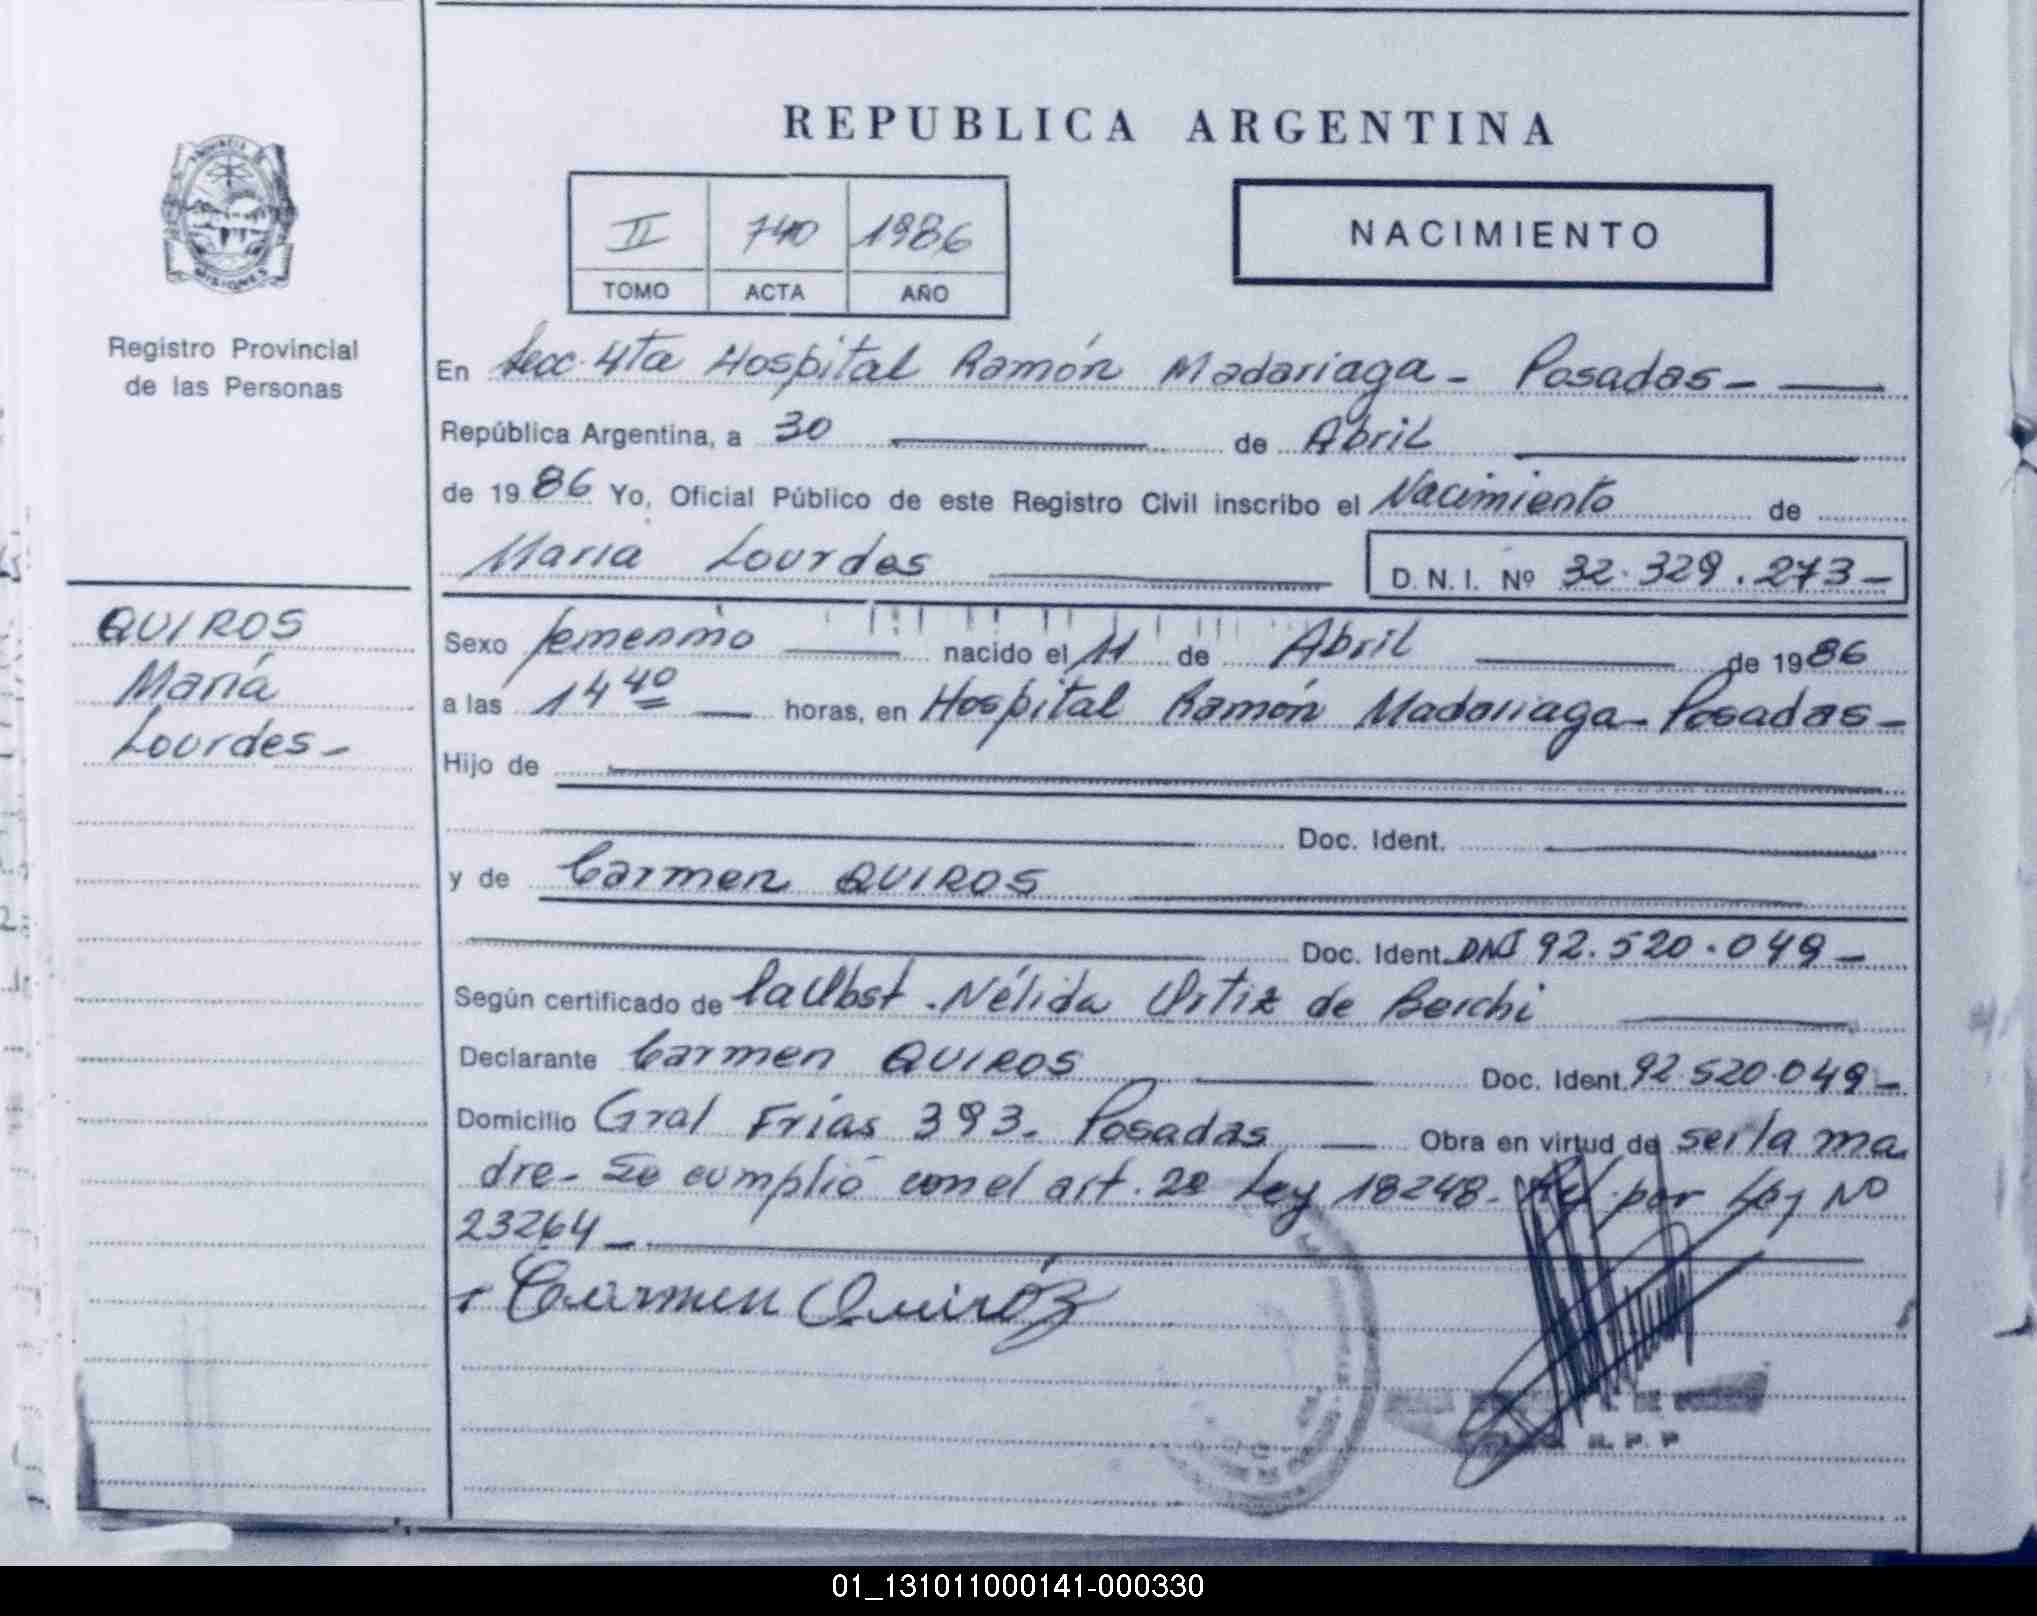 REPUBLICA ARGENTINA
II 740 1986
TOMO ACTA AÑO
NACIMIENTO
MISIONES
Registro Provincial
de las Personas
QUIROS
María
Lourdes-
En Secc. 4ta Hospital Ramón Madariaga - Posadas -
República Argentina, a 30 de Abril
de 1986 Yo, Oficial Público de este Registro Civil inscribo el Nacimiento de
Maria Lourdes D. N. I. Nº 32.329.273-
Sexo femenino nacido el 11 de Abril de 1986
a las 14 40 horas, en Hospital Ramón Madariaga - Posadas -
Hijo de
Doc. Ident.
y de Carmen QUIROS
Doc. Ident. DNI 92.520.049-
Según certificado de la Obst. Nélida Ortiz de
Declarante Carmen QUIROS Doc. Ident. 92.520.049-
Domicilio Gral Frías 393. Posadas Obra en virtud de ser la ma
dre- Se cumplió con el art. 2º Ley 18248. por Ley Nº
23264-
Carmen Quiróz
R. P. P
01_131011000141-000330